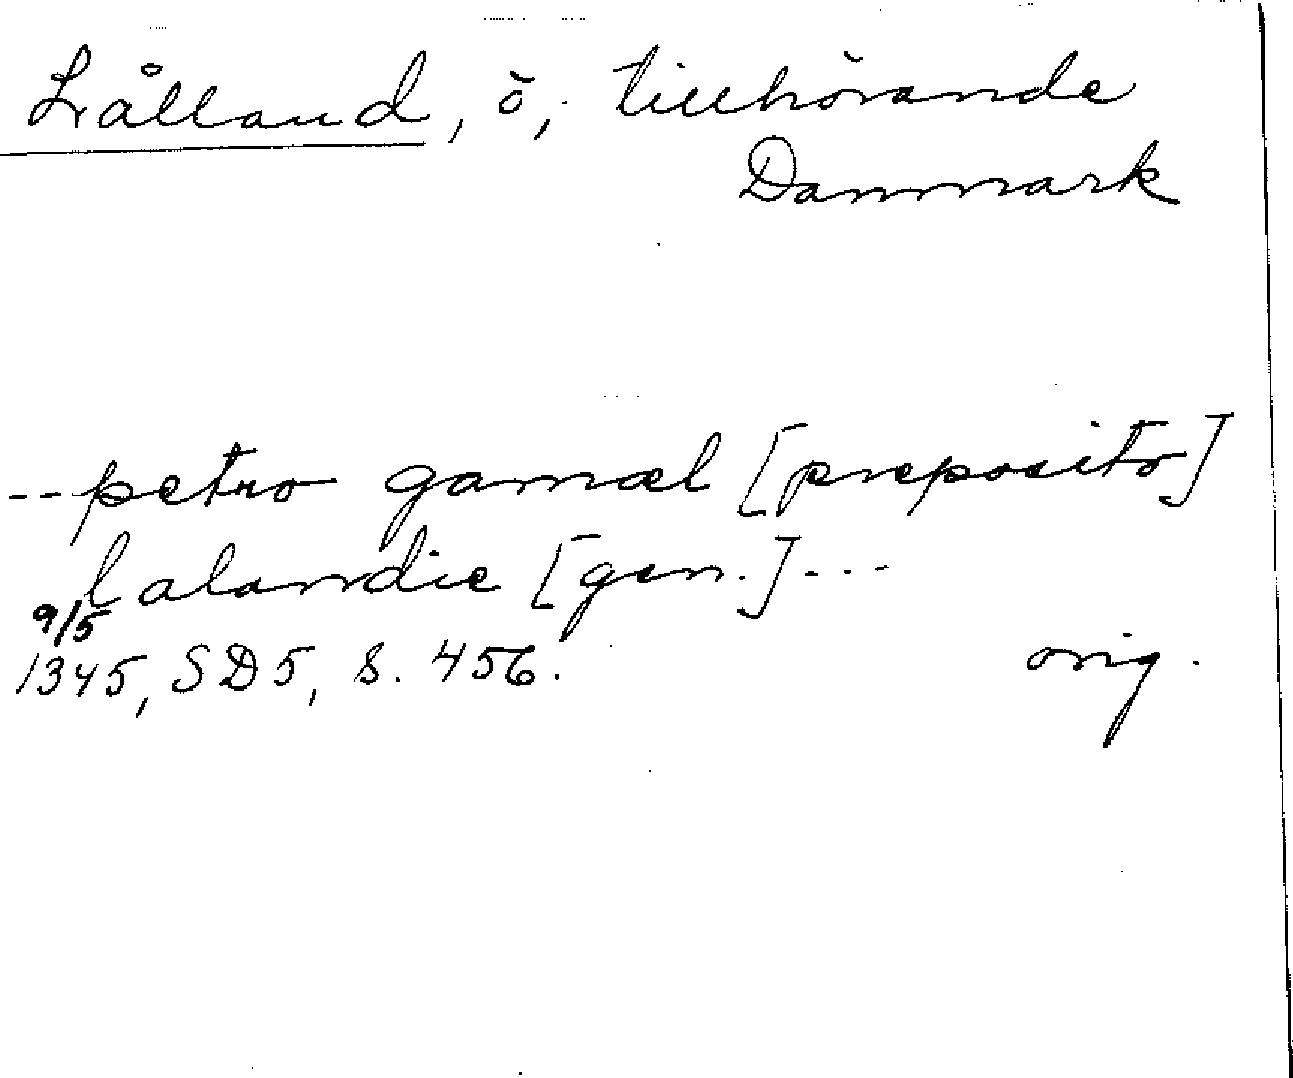 Lålland, ö, tillhörande
Danmark
--petro gamæl [preposito]
lalandie [gen.]---
9/5
1345, SD5, s. 456. orig.